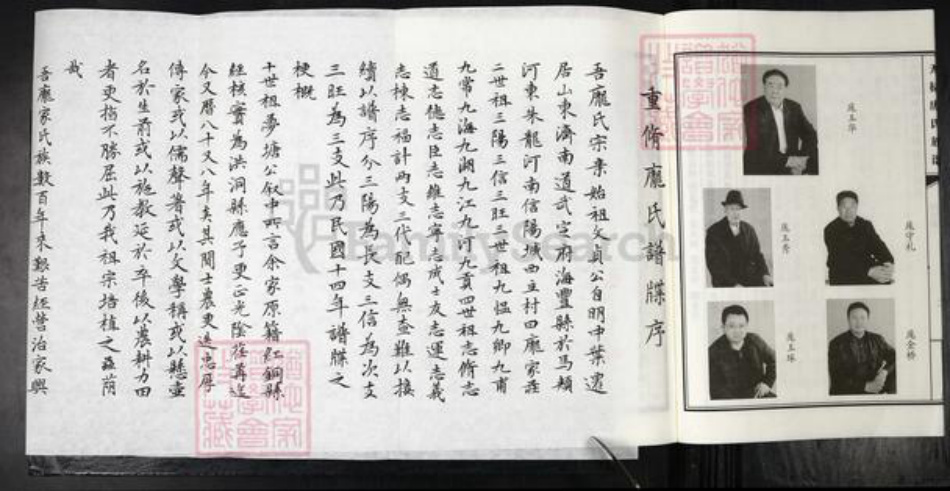 重脩龐氏譜牒序
吾龐氏宗来始祖文貞公自明中葉遷
居山東濟南道武定府海豐縣於馬頰
河東朱龍河南信陽城西立村四龐家莊
二世祖三陽三信三旺三世祖九愠九卿九甫
九常九海九湖九江九河九貢四世祖志脩志
道志德志臣志雄志寧志成志友志運志義
志棟志福計两支三代配偶無查難以接
續以譜序分三陽為長支三信為次支
三旺為三支此乃民國十四年譜牒之
梗概
十世祖夢塘公叙中所言余家原籍红銅縣
經核實為洪洞縣應予更正光陰荏苒迄
今又曆八十又八年矣其間士農更迭忠厚
傳家或以儒聲著或以文學稱或以懸壺
名於生前或以施教延於卒後以農耕力田
者更指不勝屈此乃我祖宗培植之蔭
哉
吾龐家氏族數百年来艱苦經營治家興
FamilySearch
庞玉华
庞玉秀
庞守礼
庞玉琢
庞金桥